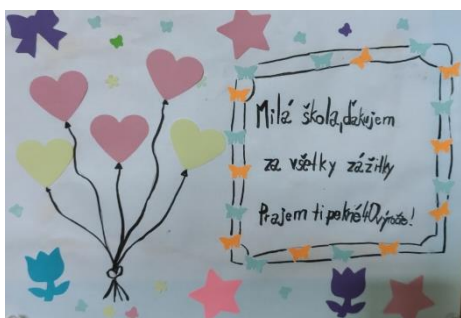 Milá škola, ďakujem
za všetky zážitky
Prajem ti pekné 40 výročie!